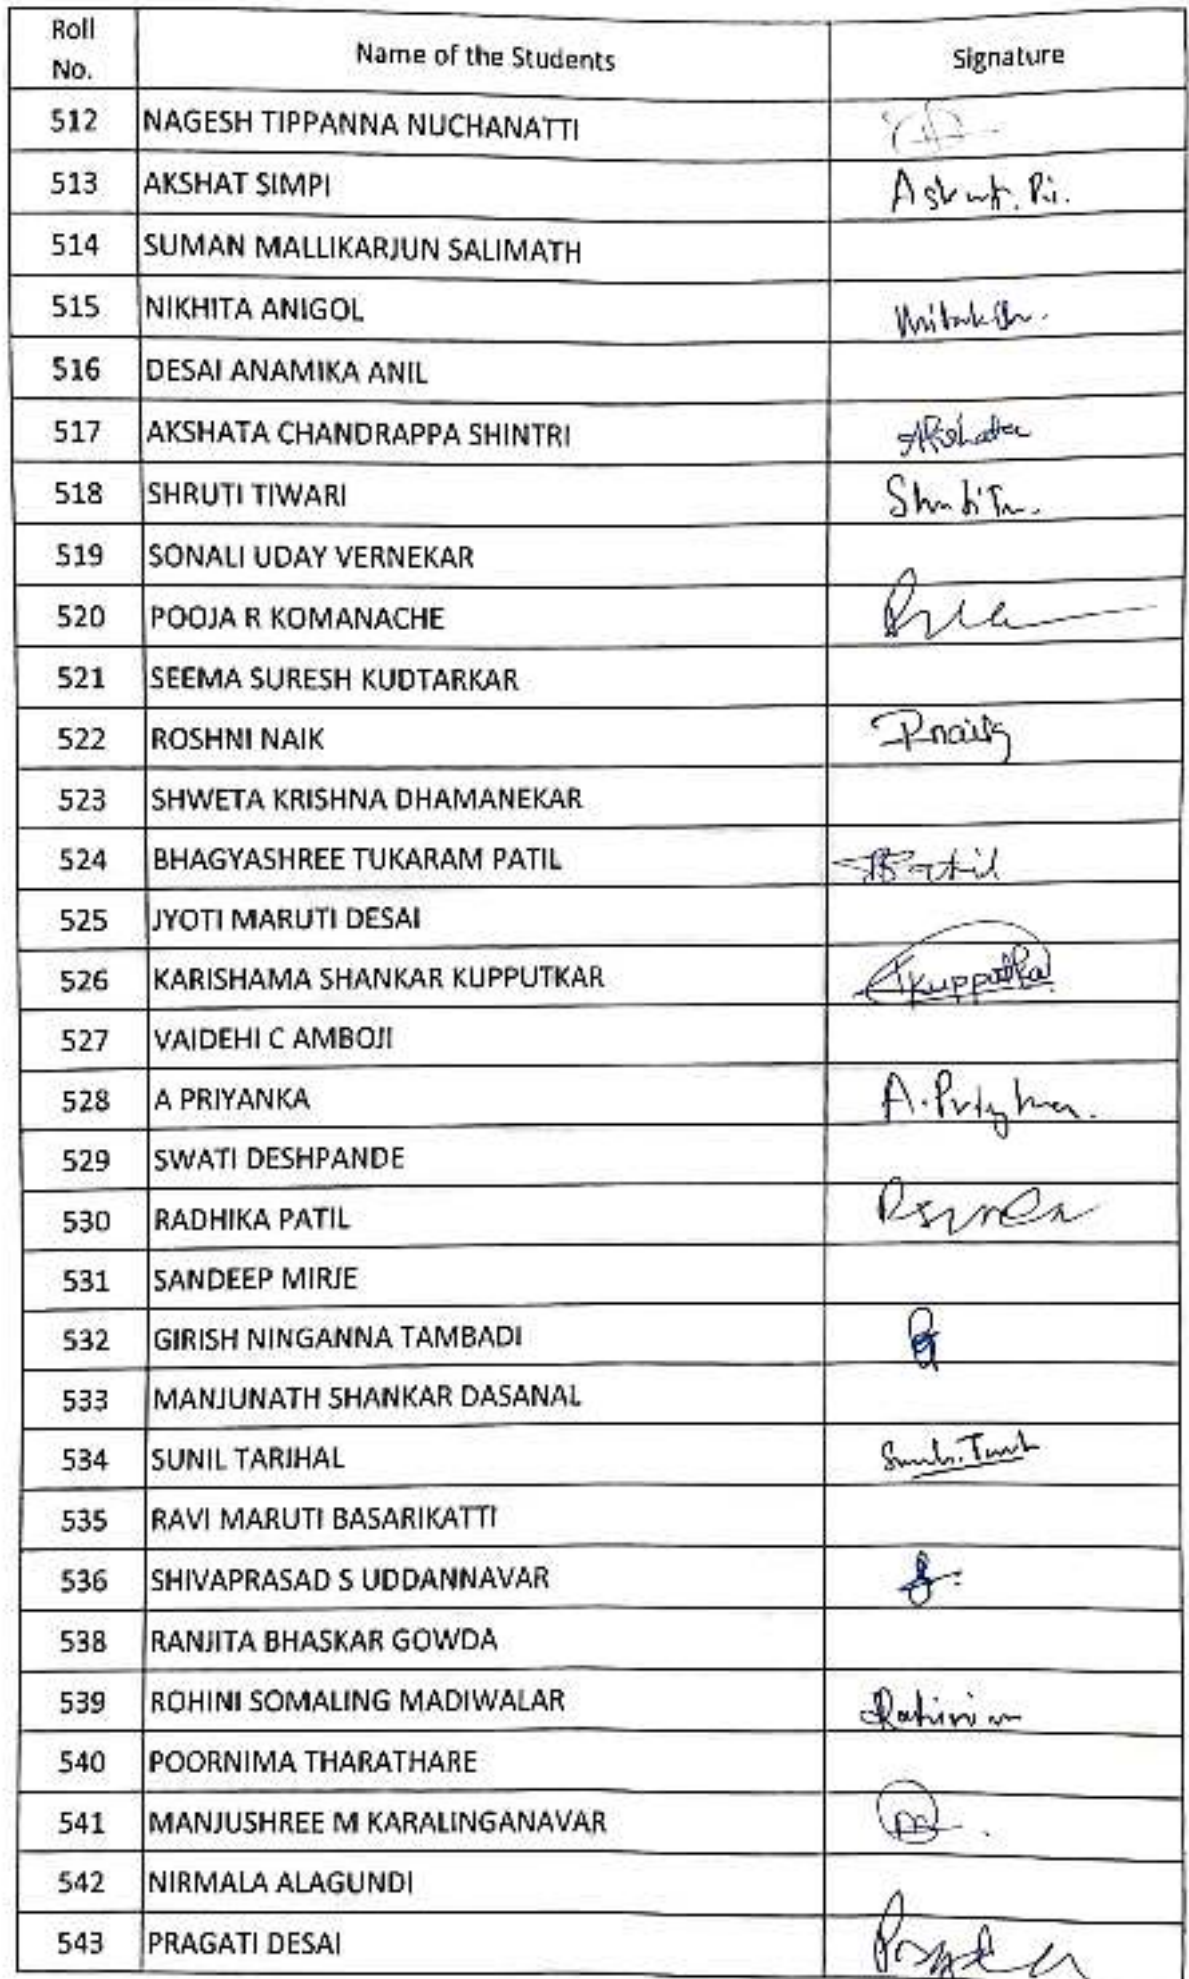 Roll No.
Name of the Students
Signature
512 NAGESH TIPPANNA NUCHANATTI
513 AKSHAT SIMPI
514 SUMAN MALLIKARJUN SALIMATH
515 NIKHITA ANIGOL
516 DESAI ANAMIKA ANIL
517 AKSHATA CHANDRAPPA SHINTRI Akshata
518 SHRUTI TIWARI
519 SONALI UDAY VERNEKAR
520 POOJA R KOMANACHE
521 SEEMA SURESH KUDTARKAR
522 ROSHNI NAIK
523 SHWETA KRISHNA DHAMANEKAR
524 BHAGYASHREE TUKARAM PATIL
525 JYOTI MARUTI DESAI
526 KARISHAMA SHANKAR KUPPUTKAR
527 VAIDEHI C AMBOJI
528 A PRIYANKA
529 SWATI DESHPANDE
530 RADHIKA PATIL
531 SANDEEP MIRJE
532 GIRISH NINGANNA TAMBADI
533 MANJUNATH SHANKAR DASANAL
534 SUNIL TARIHAL
535 RAVI MARUTI BASARIKATTI
536 SHIVAPRASAD S UDDANNAVAR
538 RANJITA BHASKAR GOWDA
539 ROHINI SOMALING MADIWALAR
540 POORNIMA THARATHARE
541 MANJUSHREE M KARALINGANAVAR
542 NIRMALA ALAGUNDI
543 PRAGATI DESAI